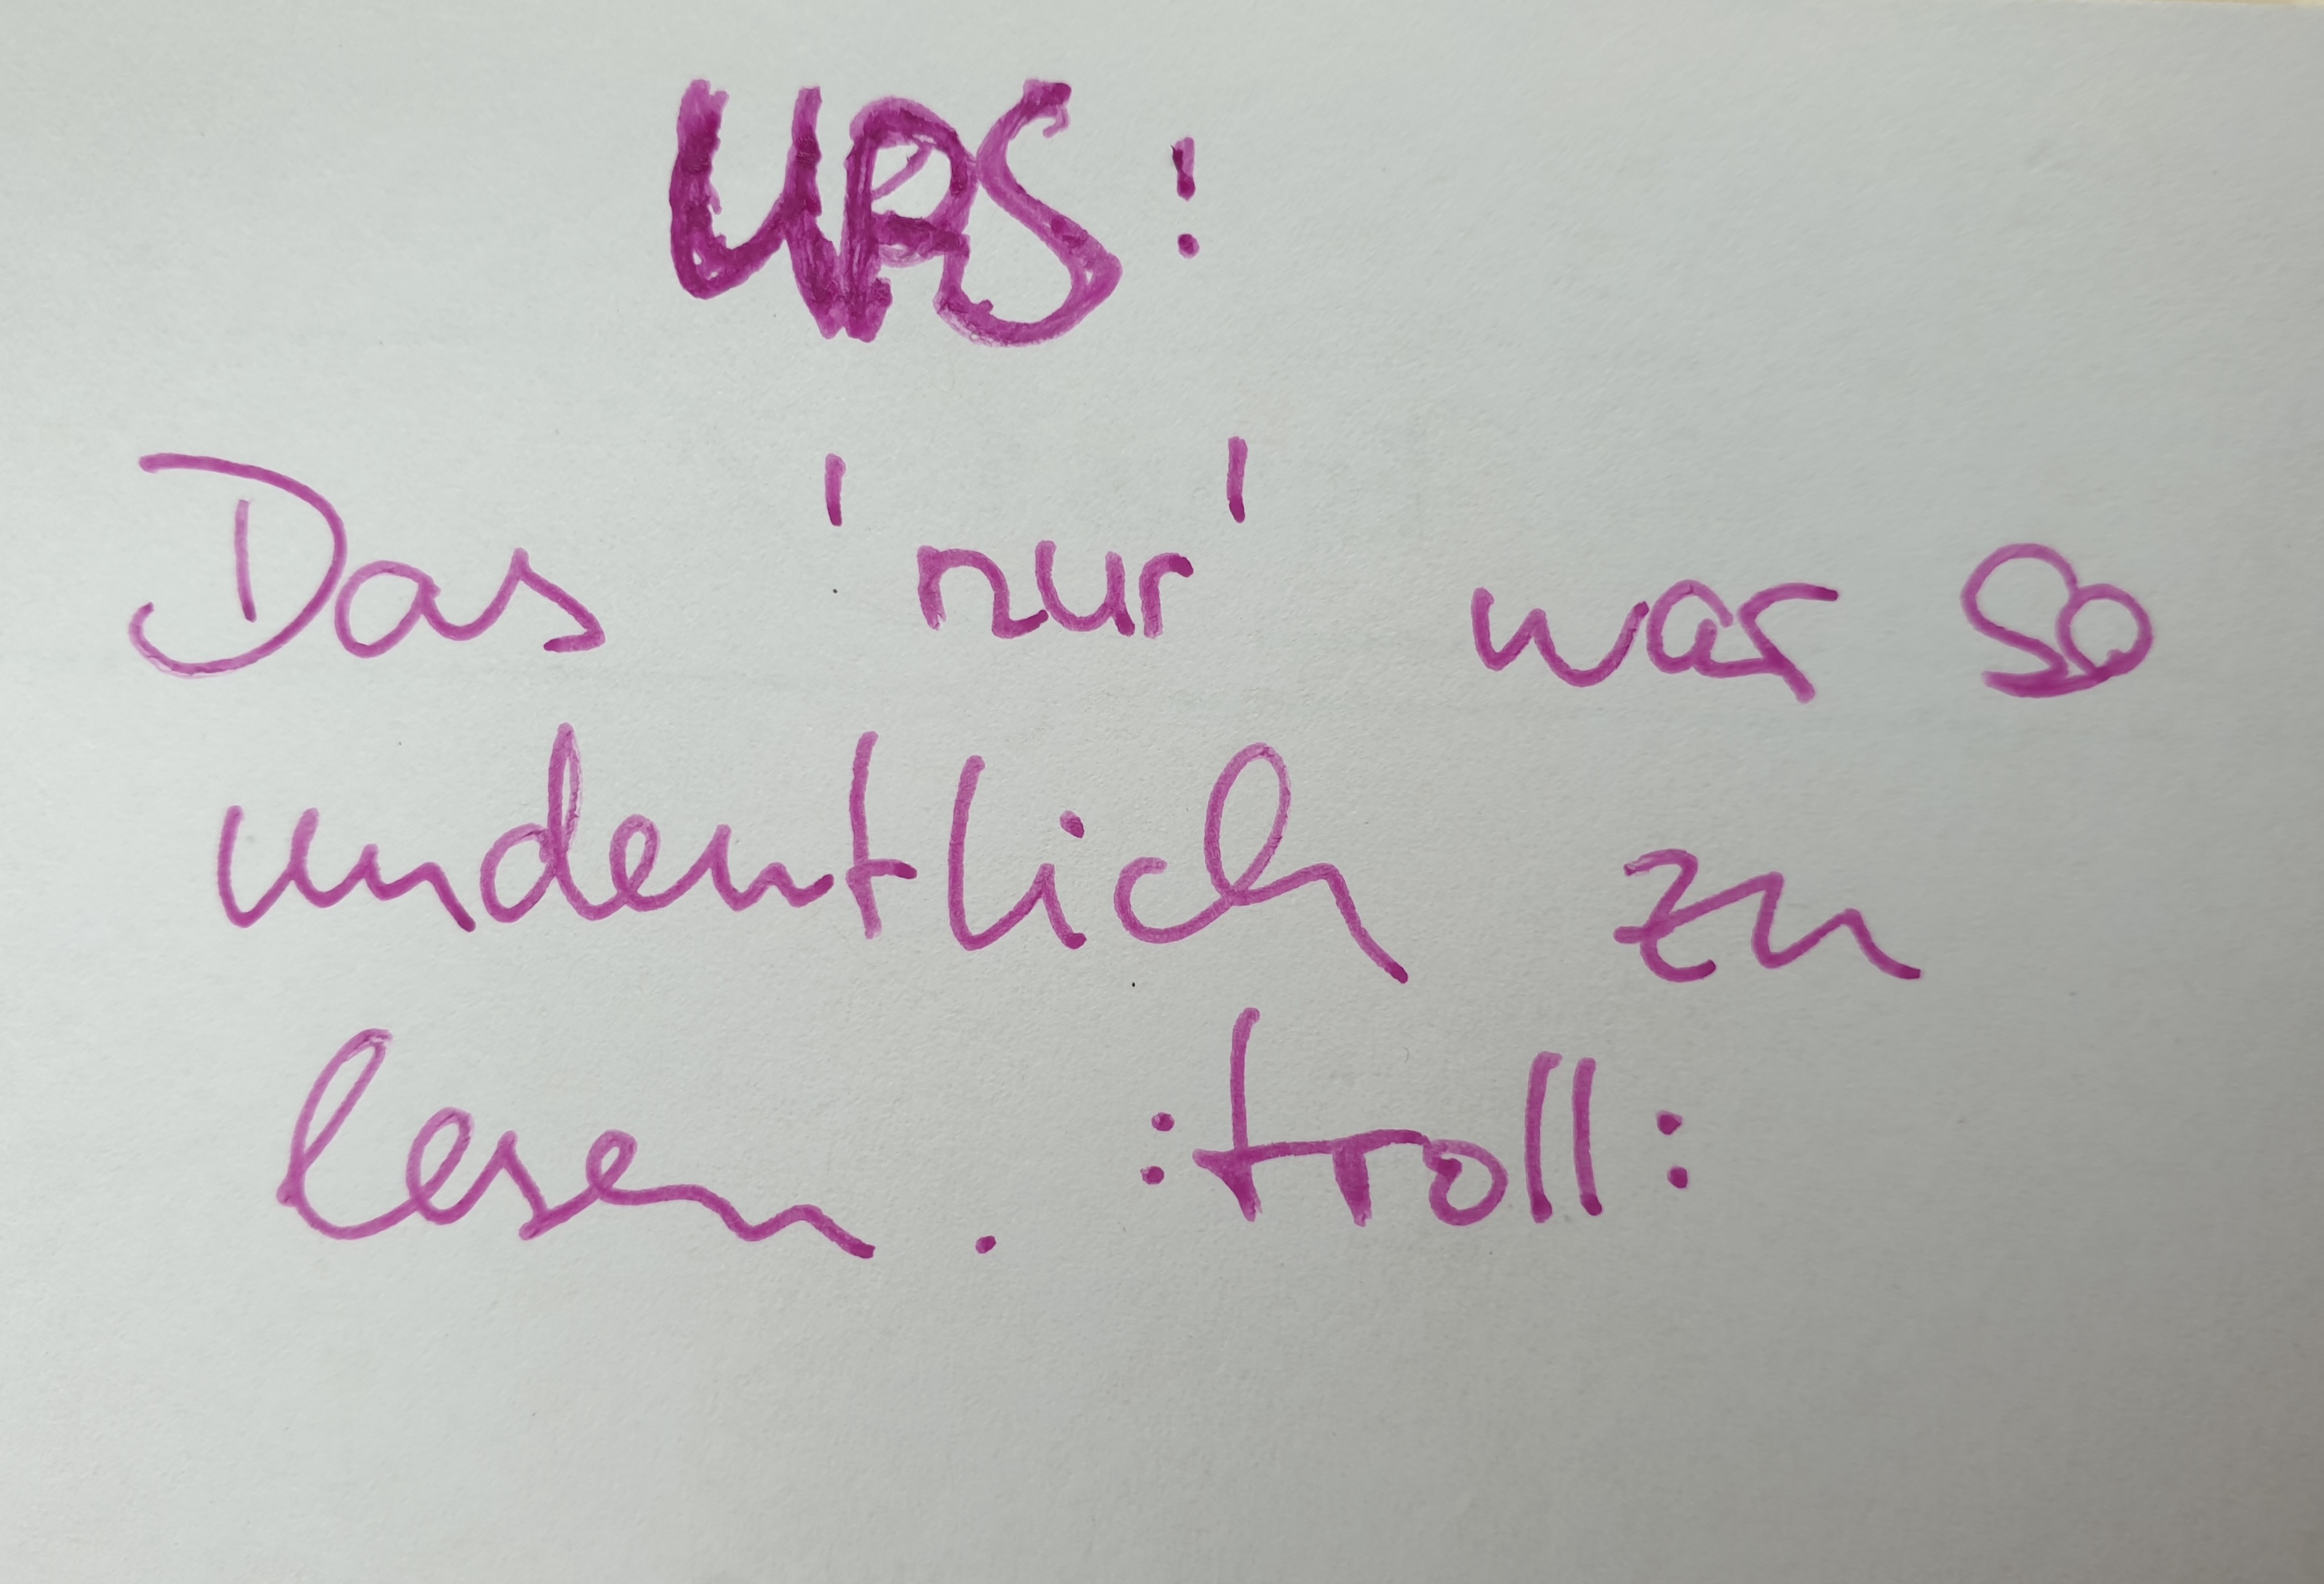 UPS!
Das 'nur' war so
undeutlich zu
lesen. :troll: